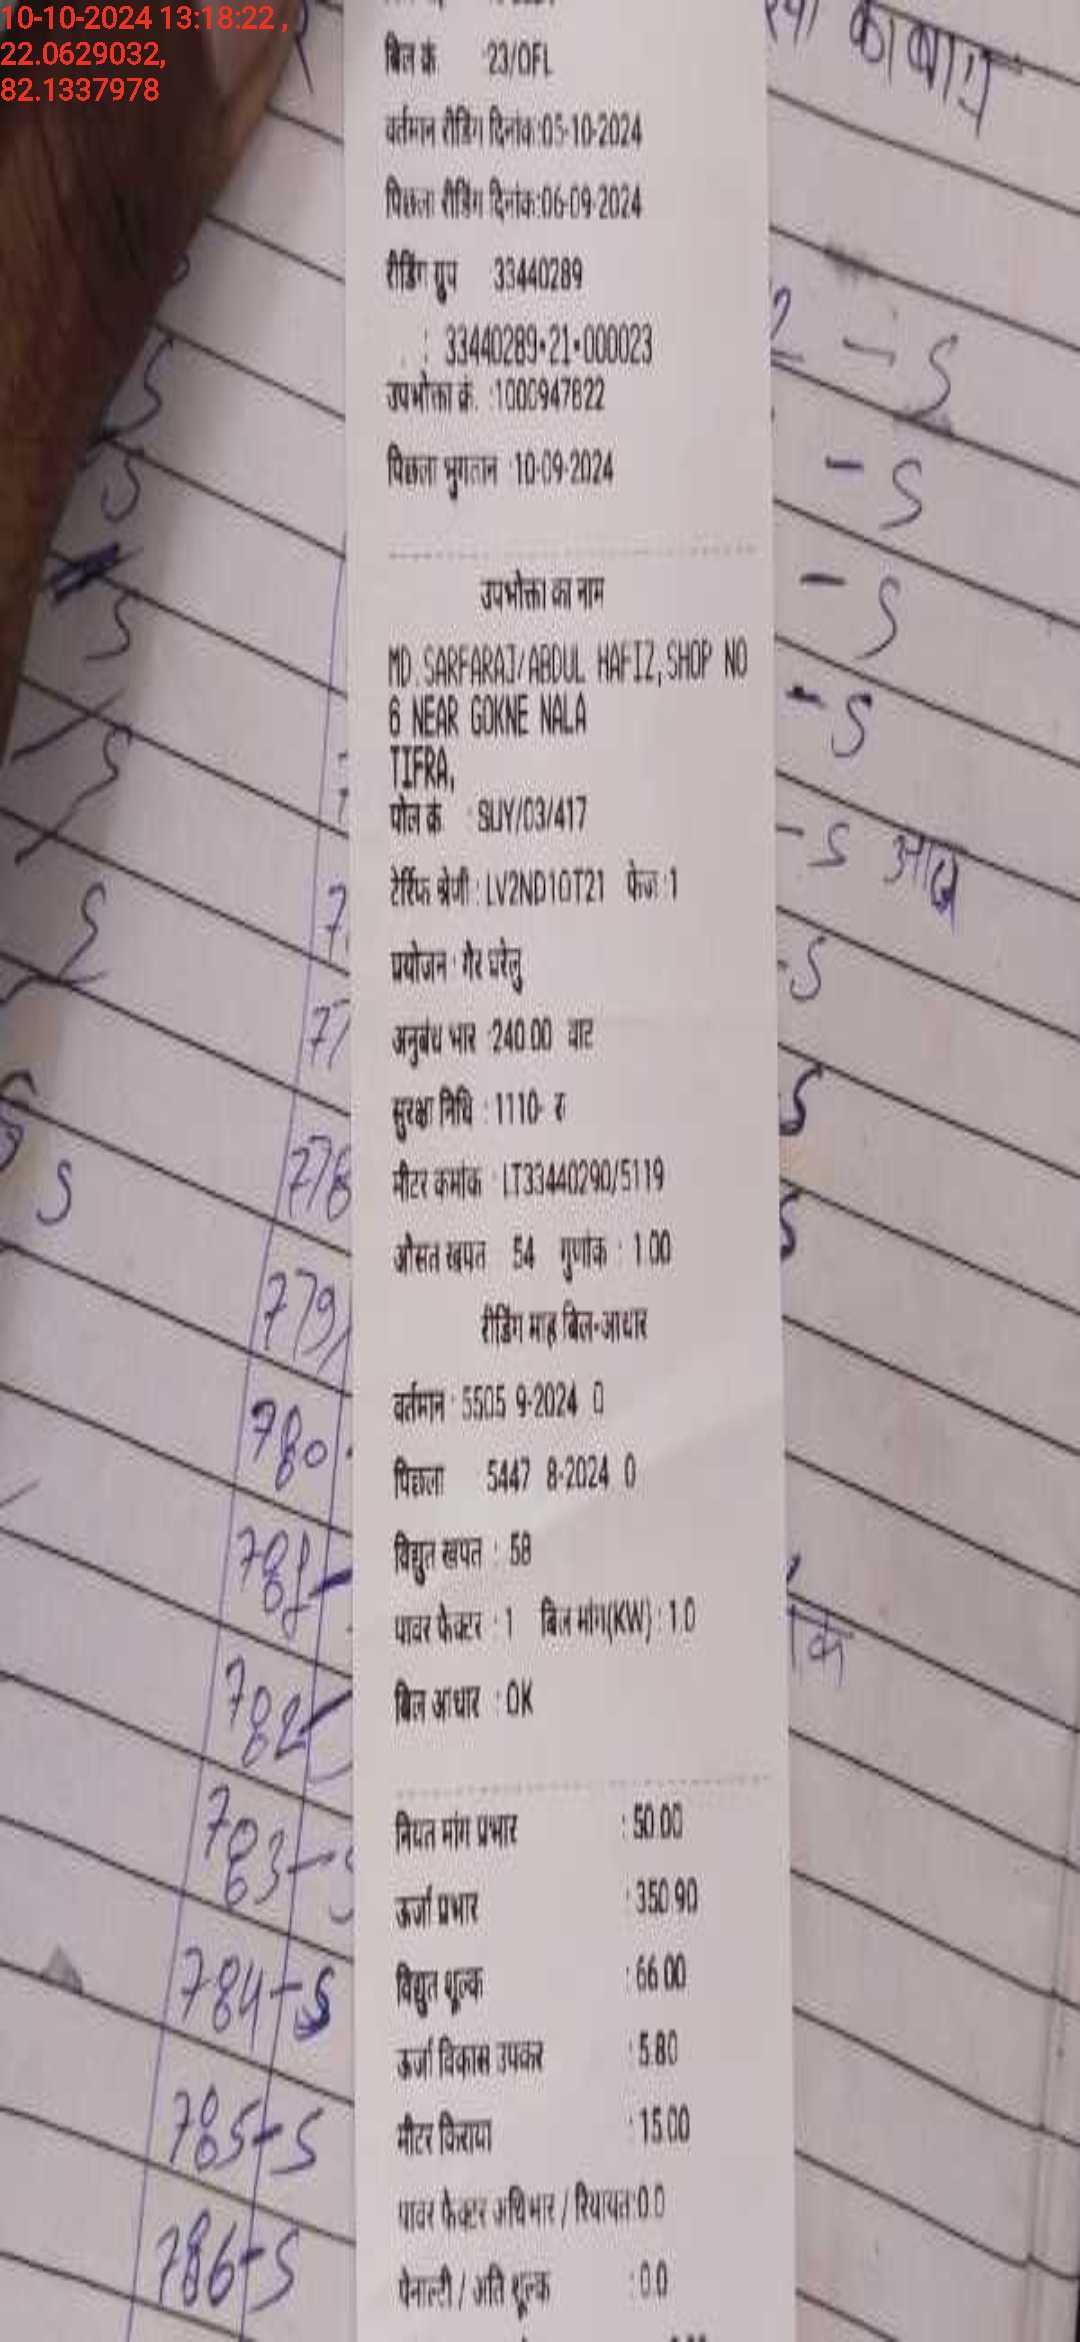 10-10-2024 13:18:22 ,
22.0629032,
82.1337978
बिल क्रं 23/OFL
वर्तमान रीडिंग दिनांक:05-10-2024
पिछला रीडिंग दिनांक:06-09-2024
रीडिंग ग्रुप 33440289
: 33440289-21-000023
उपभोक्ता क्रं. :1000947822
पिछला भुगतान 10-09-2024
उपभोक्ता का नाम
MD.SARFARAJ/ABDUL HAFIZ,SHOP NO
6 NEAR GOKNE NALA
TIFRA,
पोल क्रं : SUY/03/417
टेर्रिफ श्रेणी : LV2ND10T21 फेज :1
प्रयोजन : गैर घरेलु
अनुबंध भार :240.00 वाट
सुरक्षा निधि : 1110- रु
मीटर कमांक : LT33440290/5119
औसत खपत 54 गुणांक : 1.00
रीडिंग माह बिल-आधार
वर्तमान : 5505 9-2024 0
पिछला 5447 8-2024 0
विद्युत खपत : 58
पावर फैक्टर : 1 बिल मांग(KW) : 1.0
बिल आधार : OK
नियत मांग प्रभार : 50.00
ऊर्जा प्रभार : 350.90
विद्युत शूल्क : 66.00
ऊर्जा विकास उपकर : 5.80
मीटर किराया : 15.00
पावर फैक्टर अधिभार / रियायत:0.0
पेनाल्टी / अति शूल्क :0.0
2 - S
- S
- S
- S
- S आज
- S
S
S
S
S
S
S
S
S
77
778
779
780
781 -
782
783 - S
784 - S
785 - S
786 - S